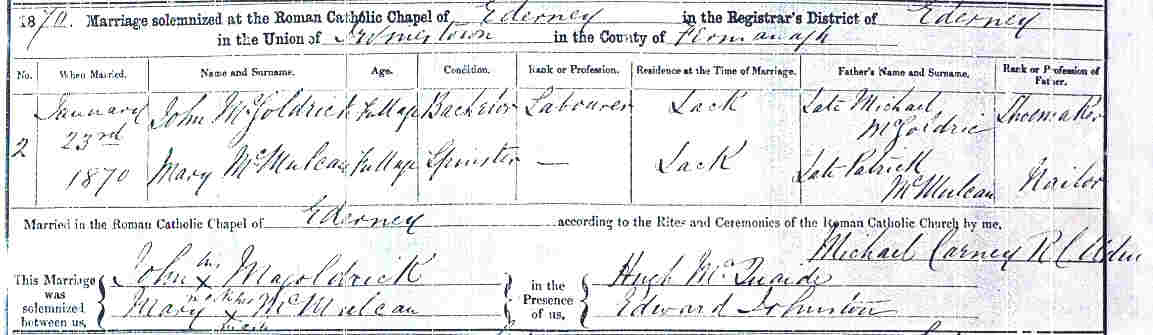 1870. Marriage solemnized at the Roman Catholic Chapel of Ederney in the Registrar's District of Ederney
in the Union of Irvinestown in the County of Fermanagh
No. When Married. Name and Surname. Age. Condition. Rank or Profession. Residence at the Time of Marriage. Father's Name and Surname. Rank or Profession of Father.
2 January 23rd 1870
John McGoldrick Full age Bachelor Labourer Lack Late Michael McGoldric Shoemaker
Mary McMulcan Full age Spinster — Lack Late Patrick McMulcan Nailor
Married in the Roman Catholic Chapel of Ederney according to the Rites and Ceremonies of the Roman Catholic Church by me,
Michael Carney R C
This Marriage was solemnized between us,
John his x Magoldrick
Mary her x McMulcan
mark
in the Presence of us,
Hugh McQuaide
Edward Johnston